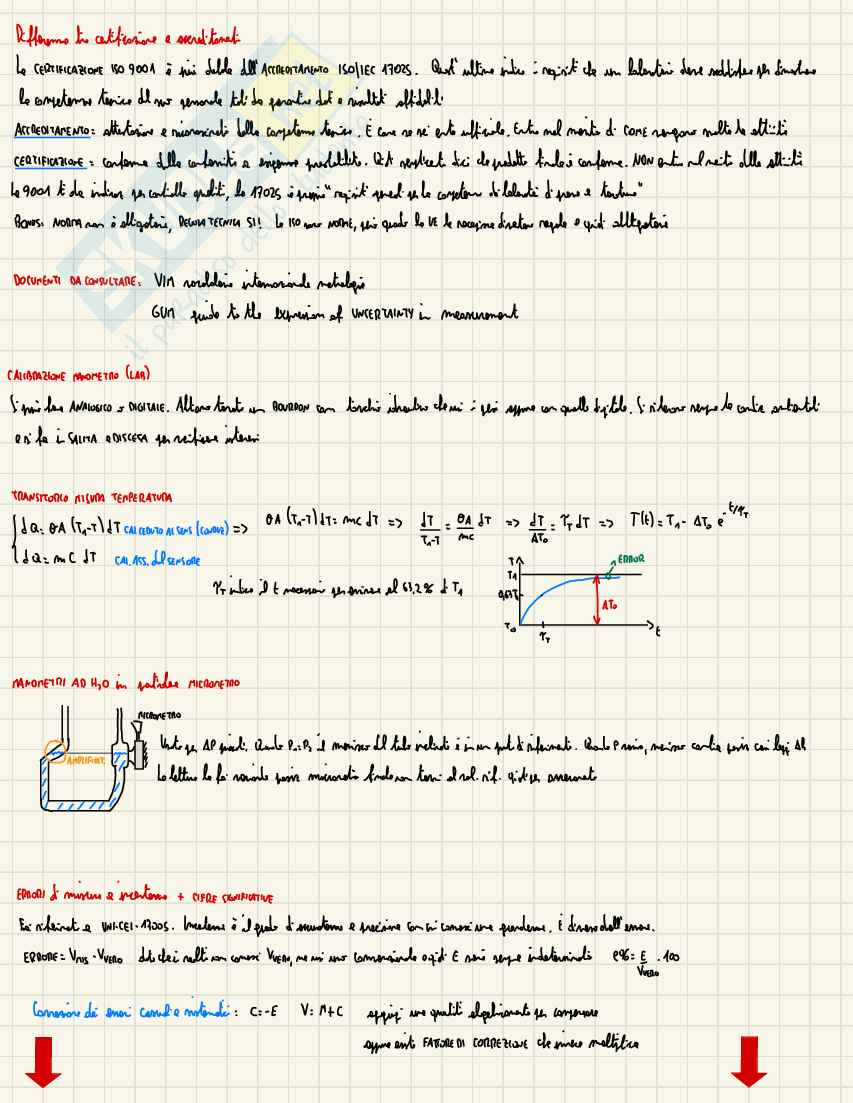 Differenza tra certificazione e accreditamento
La CERTIFICAZIONE ISO 9001 è più debole dell'ACCREDITAMENTO ISO/IEC 17025. Quest'ultimo indica i requisiti che un laboratorio deve soddisfare per dimostrare
la competenza tecnica del suo personale tali da garantire dati e risultati affidabili
ACCREDITAMENTO: attestazione e riconoscimento della competenza tecnica. È come se sei ente ufficiale. Entra nel merito di COME vengono svolte le attività
CERTIFICAZIONE: conferma della conformità a esigenze prestabilite. Qui dici che prodotto finale è conforme. NON entra nel merito delle attività
La 9001 ti dà indicaz per controllo qualità, la 17025 è proprio "requisiti generali per la competenza di laboratori di prova e taratura"
BONUS: NORMA non è obbligatoria, REGOLA TECNICA SI! Le ISO sono NORME, però quando la UE le recepisce diventano regole e quindi obbligatorie
DOCUMENTI DA CONSULTARE: VIM vocabolario internazionale metrologia
GUM guide to the expression of UNCERTAINTY in measurement
CALIBRAZIONE MANOMETRO (LAB)
Si può fare ANALOGICO o DIGITALE. Abbiamo tarato un BOURDON con torchio idraulico che poi si può sempre con quello digitale. Si rilevano sempre le condiz ambientali
e si fa in SALITA e DISCESA per verificare isteresi
TRANSITORIO MISURA TEMPERATURA
dQ = θA (T₁-T) dT CAL CEDUTO AL SENS (CONDUZ) => θA (T₁-T) dT = mC dT => dT/(T₁-T) = θA/mC dT => dT/ΔT₀ = τ_T dT => T(t) = T₁ - ΔT₀ e^(-t/τ_T)
dQ = mC dT CAL ASS. dal SENSORE
τ_T indica il t necessario per arrivare al 63,2% di T₁
T
T₁
ERROR
0,63T
ΔT₀
T₀
τ_T
t
MANOMETRI AD H₂O in particolare MICROMETRO
MICROMETRO
AMPLIFICAT.
Usato per ΔP piccoli. Quando P₁=P₂ il menisco del tubo inclinato è in un punto di riferimento. Quando P varia, menisco cambia posiz e leggi Δh
La lettura la fai variando posiz micrometro finché non torni al val. rif. quindi per azzeramento
ERRORI di misura e incertezza + CIFRE SIGNIFICATIVE
Fai riferimento a UNI-CEI-17005. Incertezza è il grado di accuratezza e precisione con cui conosci una grandezza. È diversa dall'errore.
ERRORE = V_MIS - V_VERO dato che in realtà non conosci V_VERO, ma un suo convenzionale quindi E sarà sempre indeterminato e% = E/V_VERO . 100
Correzione dei errori casuali e sistematici: C=-E V=M+C aggiungi una quantità algebricamente per compensare
oppure esiste FATTORE DI CORREZIONE che invece moltiplica